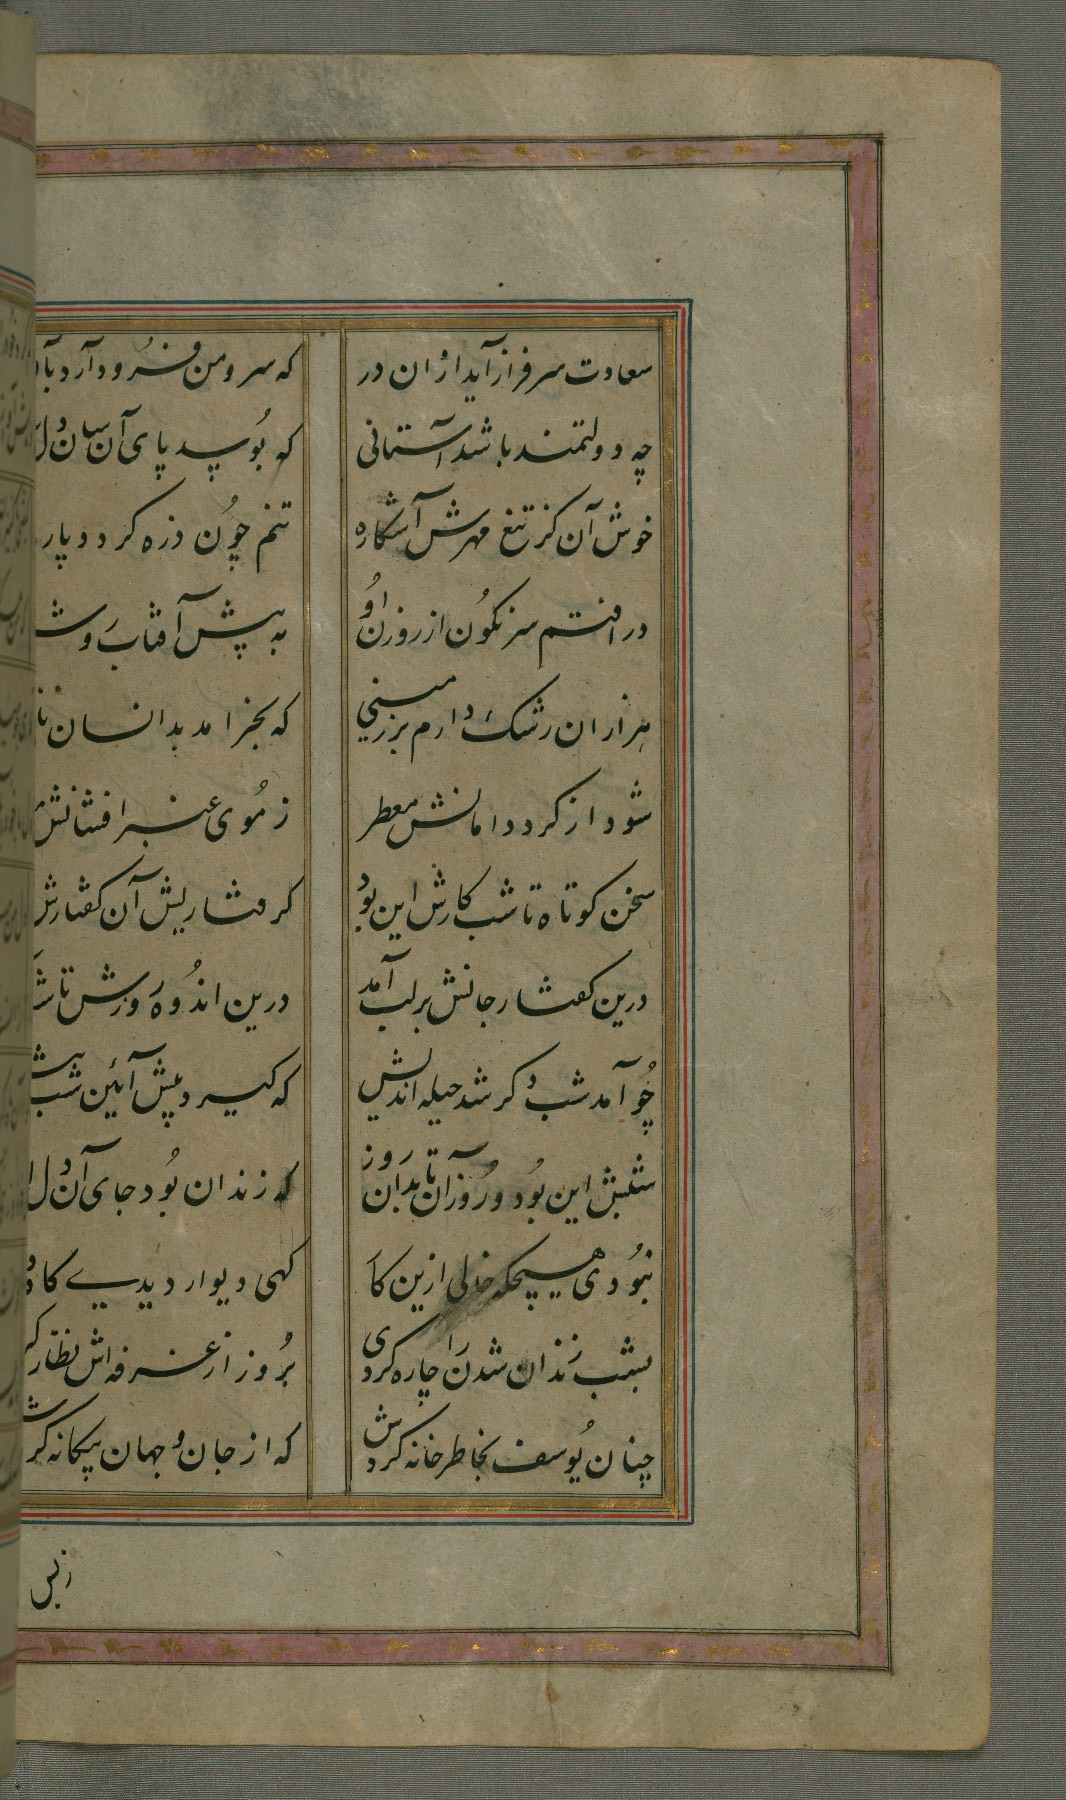 سعادت سرفراز آید ازان در که سرو من فرود آرد بآن
چه دولتمند باشد آستانی که بوسد پای آن سان
خوش آن کز تیغ مهرش آشکاره تنم چون ذره کردد پاره
در افتم سرنکون از روزن او به پیش آفتاب
هزاران رشک دارم بر زمینی که بخرامد بدانسان
شود از کرد دامانش معطر ز موی عنبر افشانش
سخن کوتاه تا شب کارش این بود کرفتاریش آن کفتارش
درین کفتار جانش بر لب آمد درین اندوه روزش تا
چو آمد شب دکر شد حیله اندیش که کیرد پیش آئین شب
شبش این بود و روز آن تا بدان روز که زندان بود جای آن
نبودی هیچکه خالی ازین کا کهی دیوار دیدی کاه
بشب زندان شدن را چاره کردی بروز از غرفه اش نظاره
چنان یوسف بخاطر خانه کردش که از جان و جهان بیکانه کردش
زبس